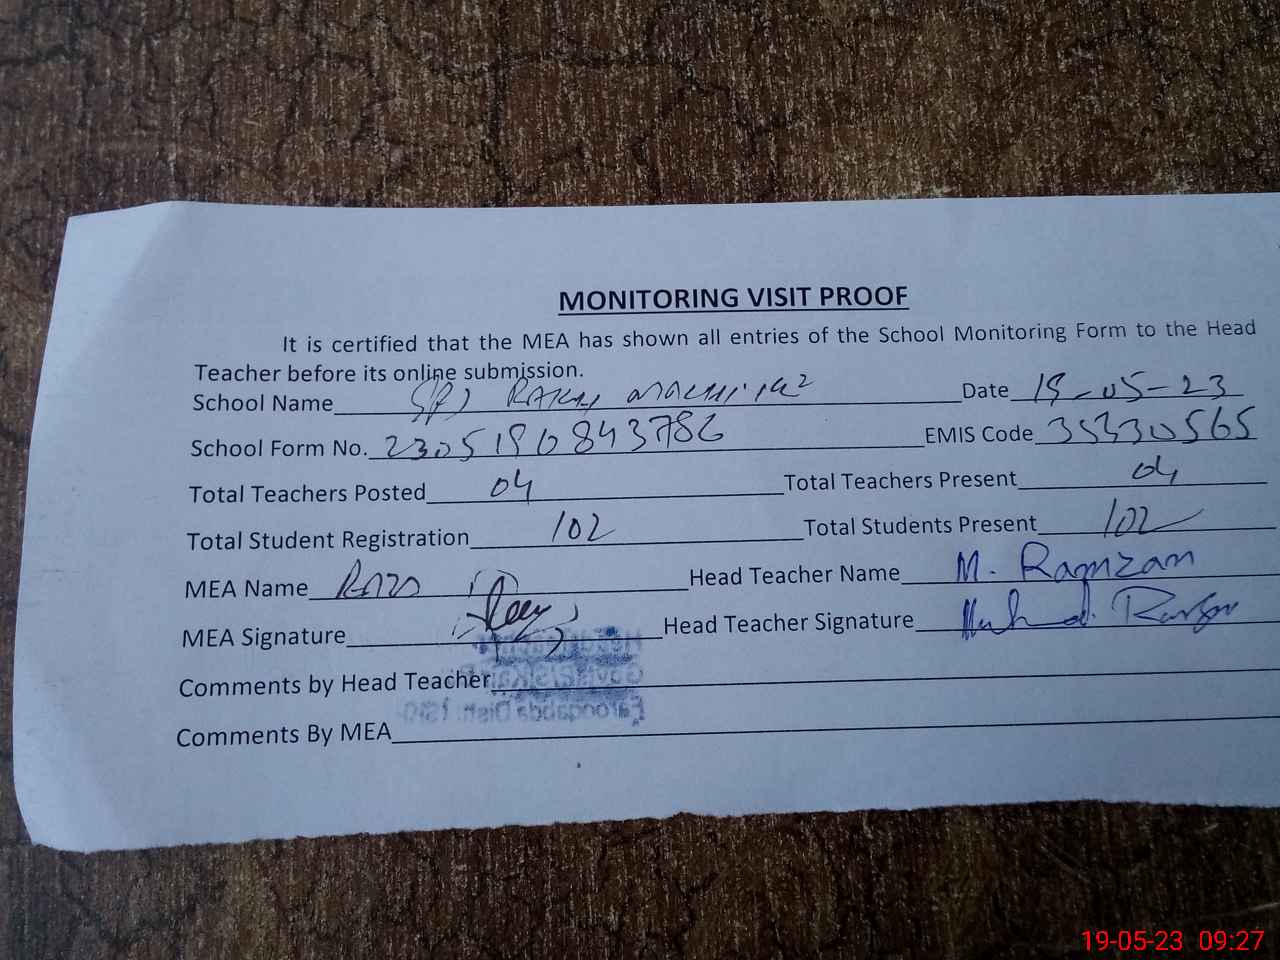 MONITORING VISIT PROOF
It is certified that the MEA has shown all entries of the School Monitoring Form to the Head
Teacher before its online submission.
School Name Date 19-05-23
School Form No. 230519 0843786 EMIS Code 35330565
Total Teachers Posted 04 Total Teachers Present 04
Total Student Registration 102 Total Students Present 102
MEA Name Head Teacher Name M. Ramzan
MEA Signature Head Teacher Signature
Comments by Head Teacher
Comments By MEA
19-05-23 09:27